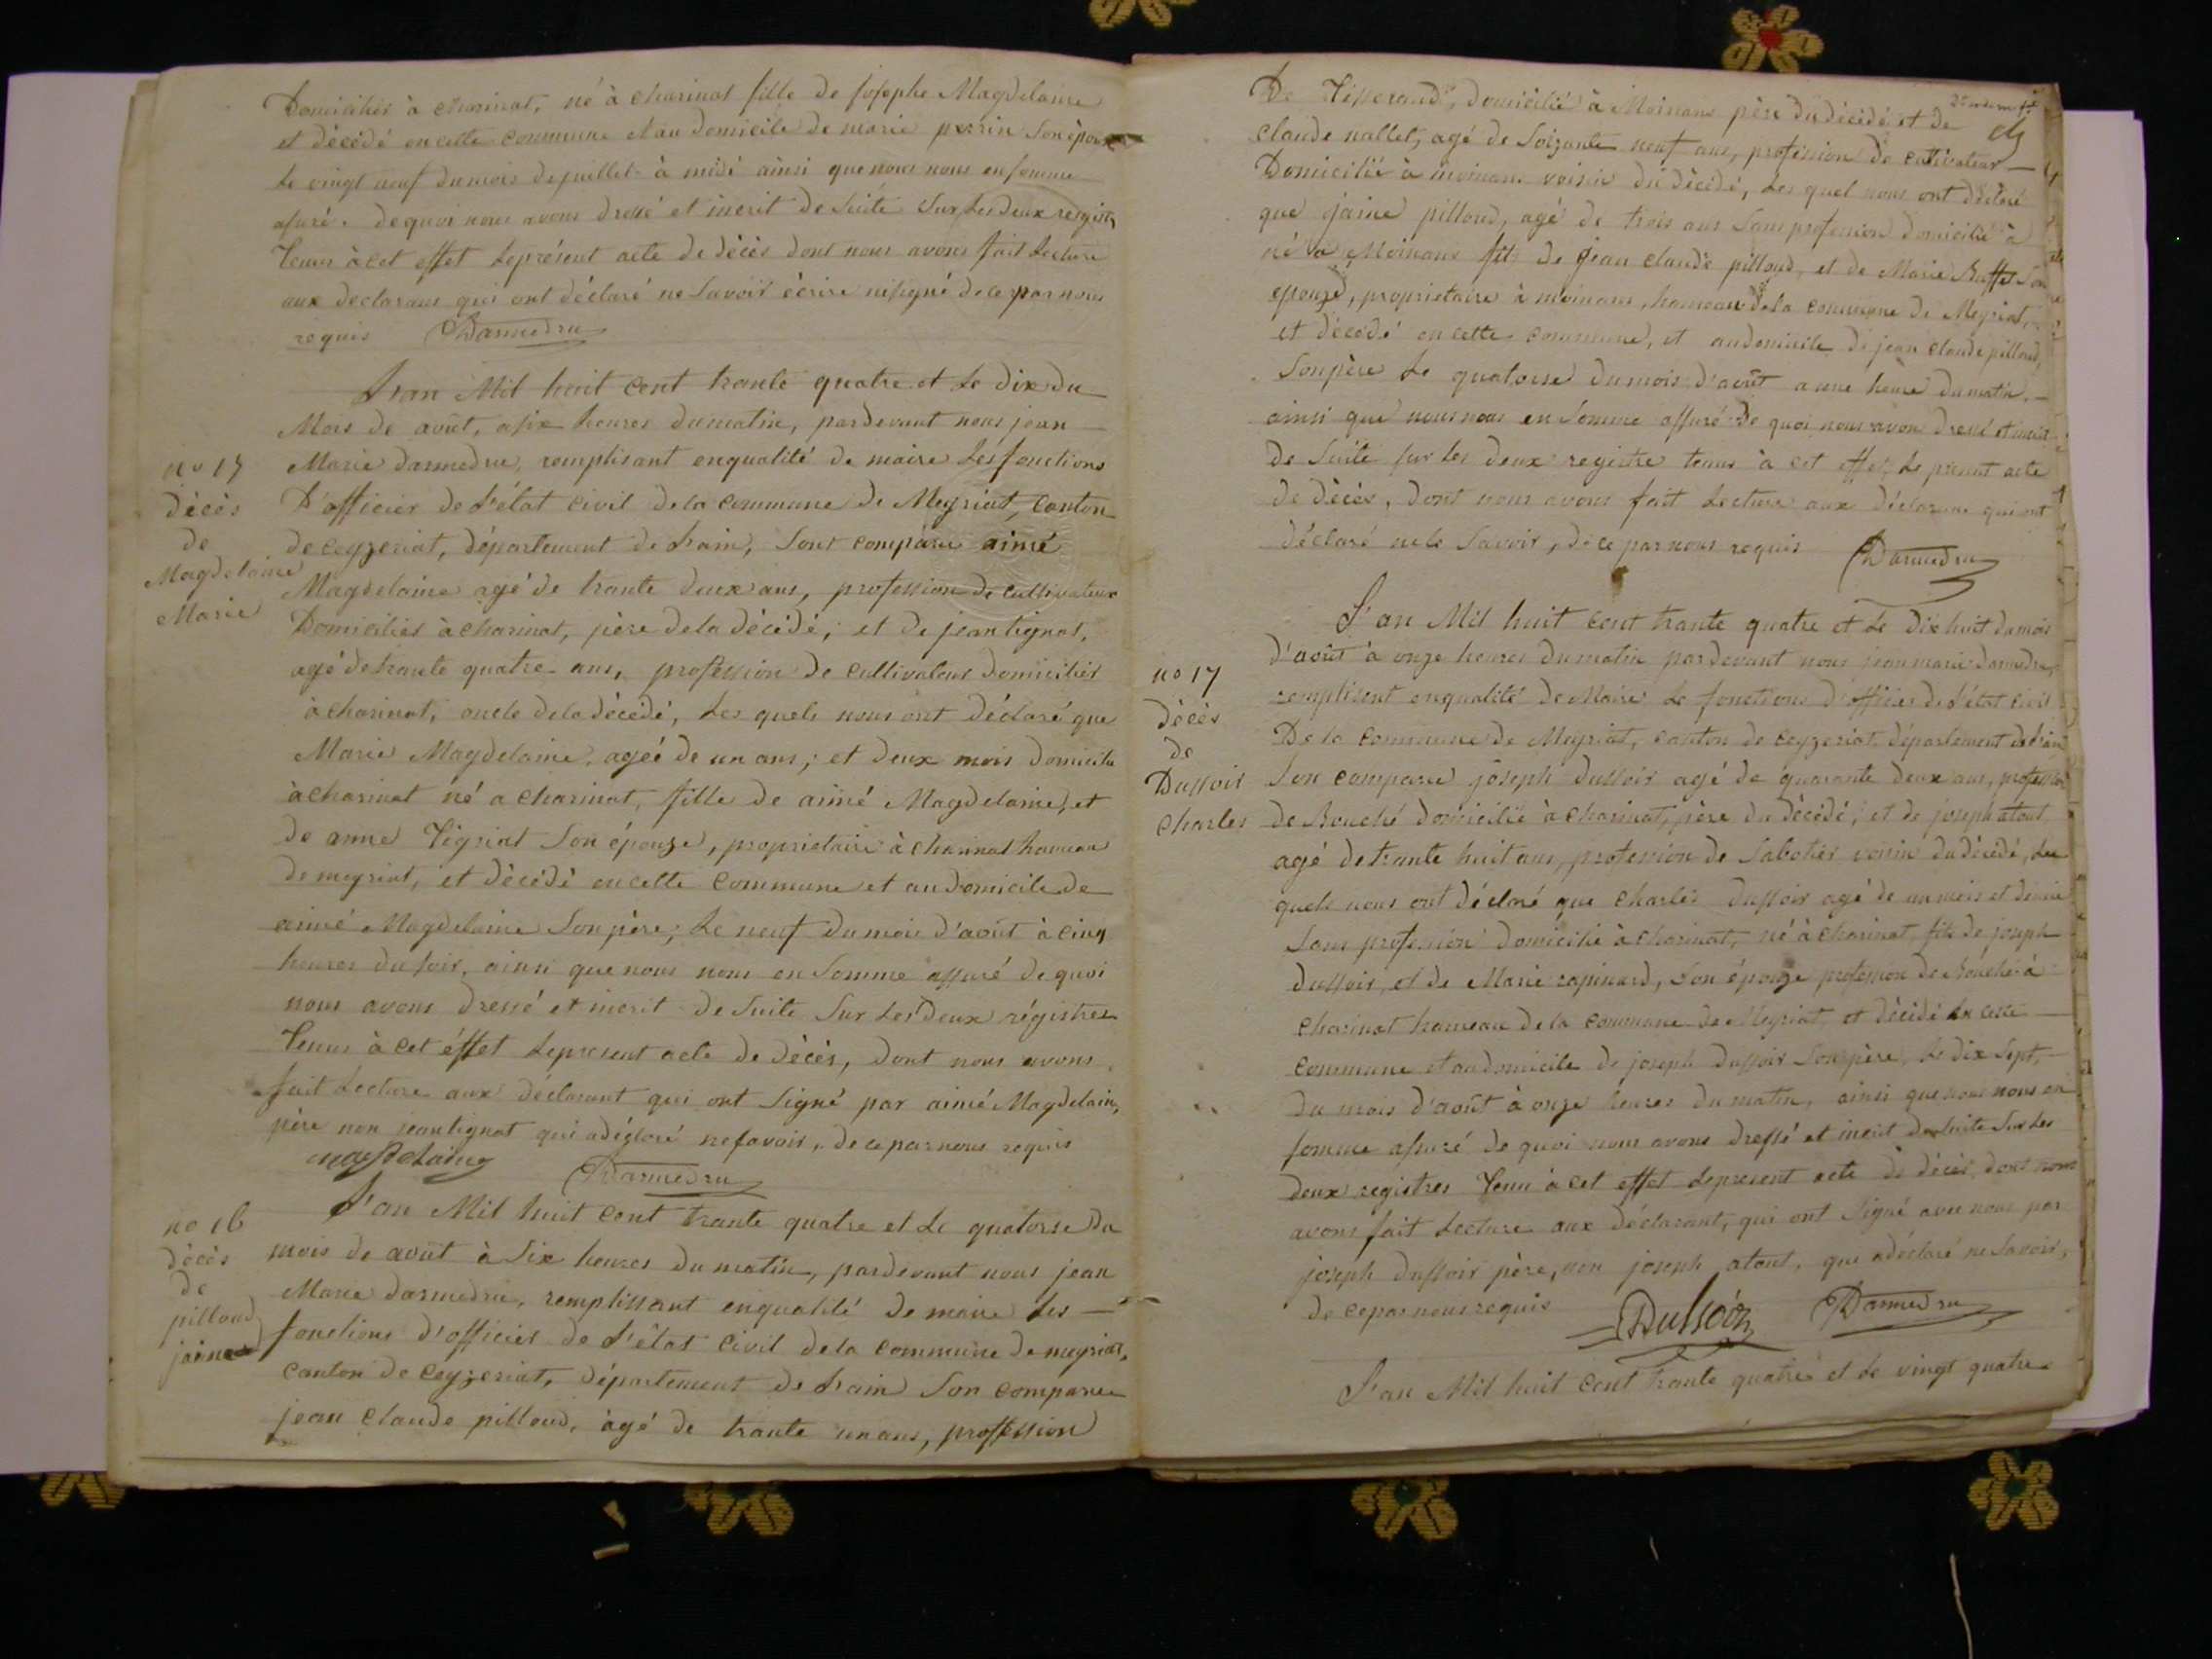 Domiciliés à charinat, né à charinat fille de josephe Magdelaine
et décédé en cette commune et au domicile de marie perrin son épouze
Le vingt neuf du mois de juillet à midi ainsi que nous nous en somme
assuré. de quoi nous avons dressé et inscrit de suite sur Les deux registres
Tenus à cet effet Le présent acte de décès dont nous avons fait Lecture
aux declarans qui ont déclaré ne savoir écrire ni signé de ce par nous
requis Darmedru
L'an Mil huit cent trante quatre et Le dix du
Mois de août, a six heures du matin, pardevant nous jean
no 15
décès
de
Magdelaine
Marie
Marie darmedru, remplisant en qualité de maire Les fonctions
D'officier de L'état civil de la commune de Meyriat, canton
de ceyzeriat, département de L'ain, sont comparu aimé
Magdelaine agé de trante deux ans, profession de cultivateur
Domiciliés à charinat, père de la décédé; et de jean tignat,
agé de trante quatre ans, profession de cultivateur domiciliés
à charinat, oncle de la décédé, Les quels nous ont déclaré que
Marie Magdelaine, agéé de un ans; et deux mois domicilié
à charinat né a charinat, fille de aimé Magdelaine, et
de anne son épouze, proprietaire à charinat hameau
de meyriat, et décédé en cette commune et au domicile de
aimé Magdelaine son père; Le neuf du mois d'août à cinq
heures du soir, ainsi que nous nous en somme assuré de quoi
nous avons dressé et inscrit de suite sur Les deux régistres
Tenus à cet éffet Le present acte de décès, dont nous avons
fait Lecture aux déclarant qui ont signé par aimé Magdelaine,
père non jean tignat qui a déclaré ne savoir, de ce par nous requis
magdelaine Darmedru
no 16
décès
de
pilloud
jaine
L'an Mil huit cent trante quatre et Le quatorse du
mois de août à six heures du matin, pardevant nous jean
Marie darmedru, remplissant en qualité de maire Les
fonctions d'officier de L'état civil de la commune de meyriat,
canton de ceyzeriat, département de L'ain son comparu
jean claude pilloud, agé de trante un ans, proffession
De Tisserand, domicilié à Moinans père du décédé et de
claude nallet, agé de soizante neuf ans, profession de cultivateur
Domicilié à moinans voisin du décédé, Les quel nous ont déclaré
que jaine pilloud, agé de trois ans sans profession domicilié à
né a Moinans fils de jean claude pilloud, et de Marie Buffet son
epouze, proprietaire à moinans, hameau de la commune de Meyriat,
et décédé en cette commune, et au domicile de jean claude pilloud,
son père Le quatorse du mois d'août a une heure du matin,
ainsi que nous nous en somme assuré de quoi nous avon dressé et inscrit
de suite sur les deux registre tenus à cet effet, Le présent acte
de décès, dont nous avons fait Lecture aux déclarans qui ont
déclaré ne le savoir, de ce par nous requis Darmedru
L'an Mil huit cent trante quatre et Le dix huit du mois
d'août à onze heures du matin pardevant nous jean marie darmedru,
no 17
décès
de
Dussoir
charles
remplisent en qualité de Maire Le fonctions d'officier de L'état civil
De la commune de Meyriat, canton de ceyzeriat, département de L'ain
son comparu joseph dussoir agé de quarante deux ans, profession
de Bouché domicilié à charinat, père du décédé; et de joseph atout,
agé de trante huit ans, profession de sabotier voisin du décédé, Les
quels nous ont déclaré que charles dussoir agé de un mois et demie
sans profession domicilié à charinat, né à charinat, fils de joseph
dussoir, et de Marie rapinard, son épouze profession de Bouché à
charinat hameau de la commune de Meyriat, et décédé en cette
commune et au domicile de joseph dussoir son père, Le dix sept,
du mois d'août à onze heures du matin, ainsi que nous nous en
somme assuré de quoi nous avons dressé et inscrit de suite sur Les
deux registres Tenu à cet effet Le present acte de décès dont nous
avons fait Lecture aux déclarant, qui ont signé avec nous par
joseph dussoir père, non joseph atout, que a déclaré ne savoir,
de ce par nous requis Dussoir Darmedru
L'an Mil huit cent trante quatre et Le vingt quatre